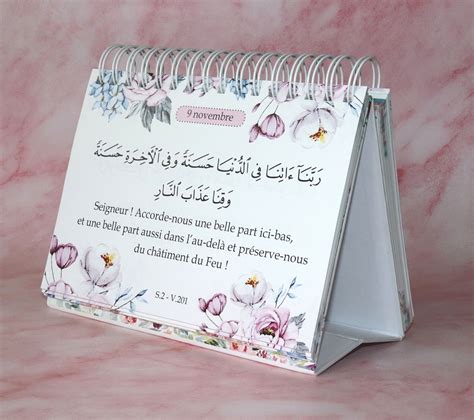 9 novembre
رَبَّنَآ ءَاتِنَا فِي ٱلدُّنْيَا حَسَنَةً وَفِي ٱلْأَخِرَةِ حَسَنَةً
وَقِنَا عَذَابَ ٱلنَّارِ
Seigneur ! Accorde-nous une belle part ici-bas,
et une belle part aussi dans l'au-delà et préserve-nous
du châtiment du Feu !
S.2 - V.201